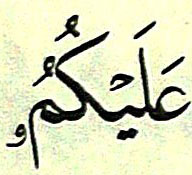 عَلَيۡكُمُۥ